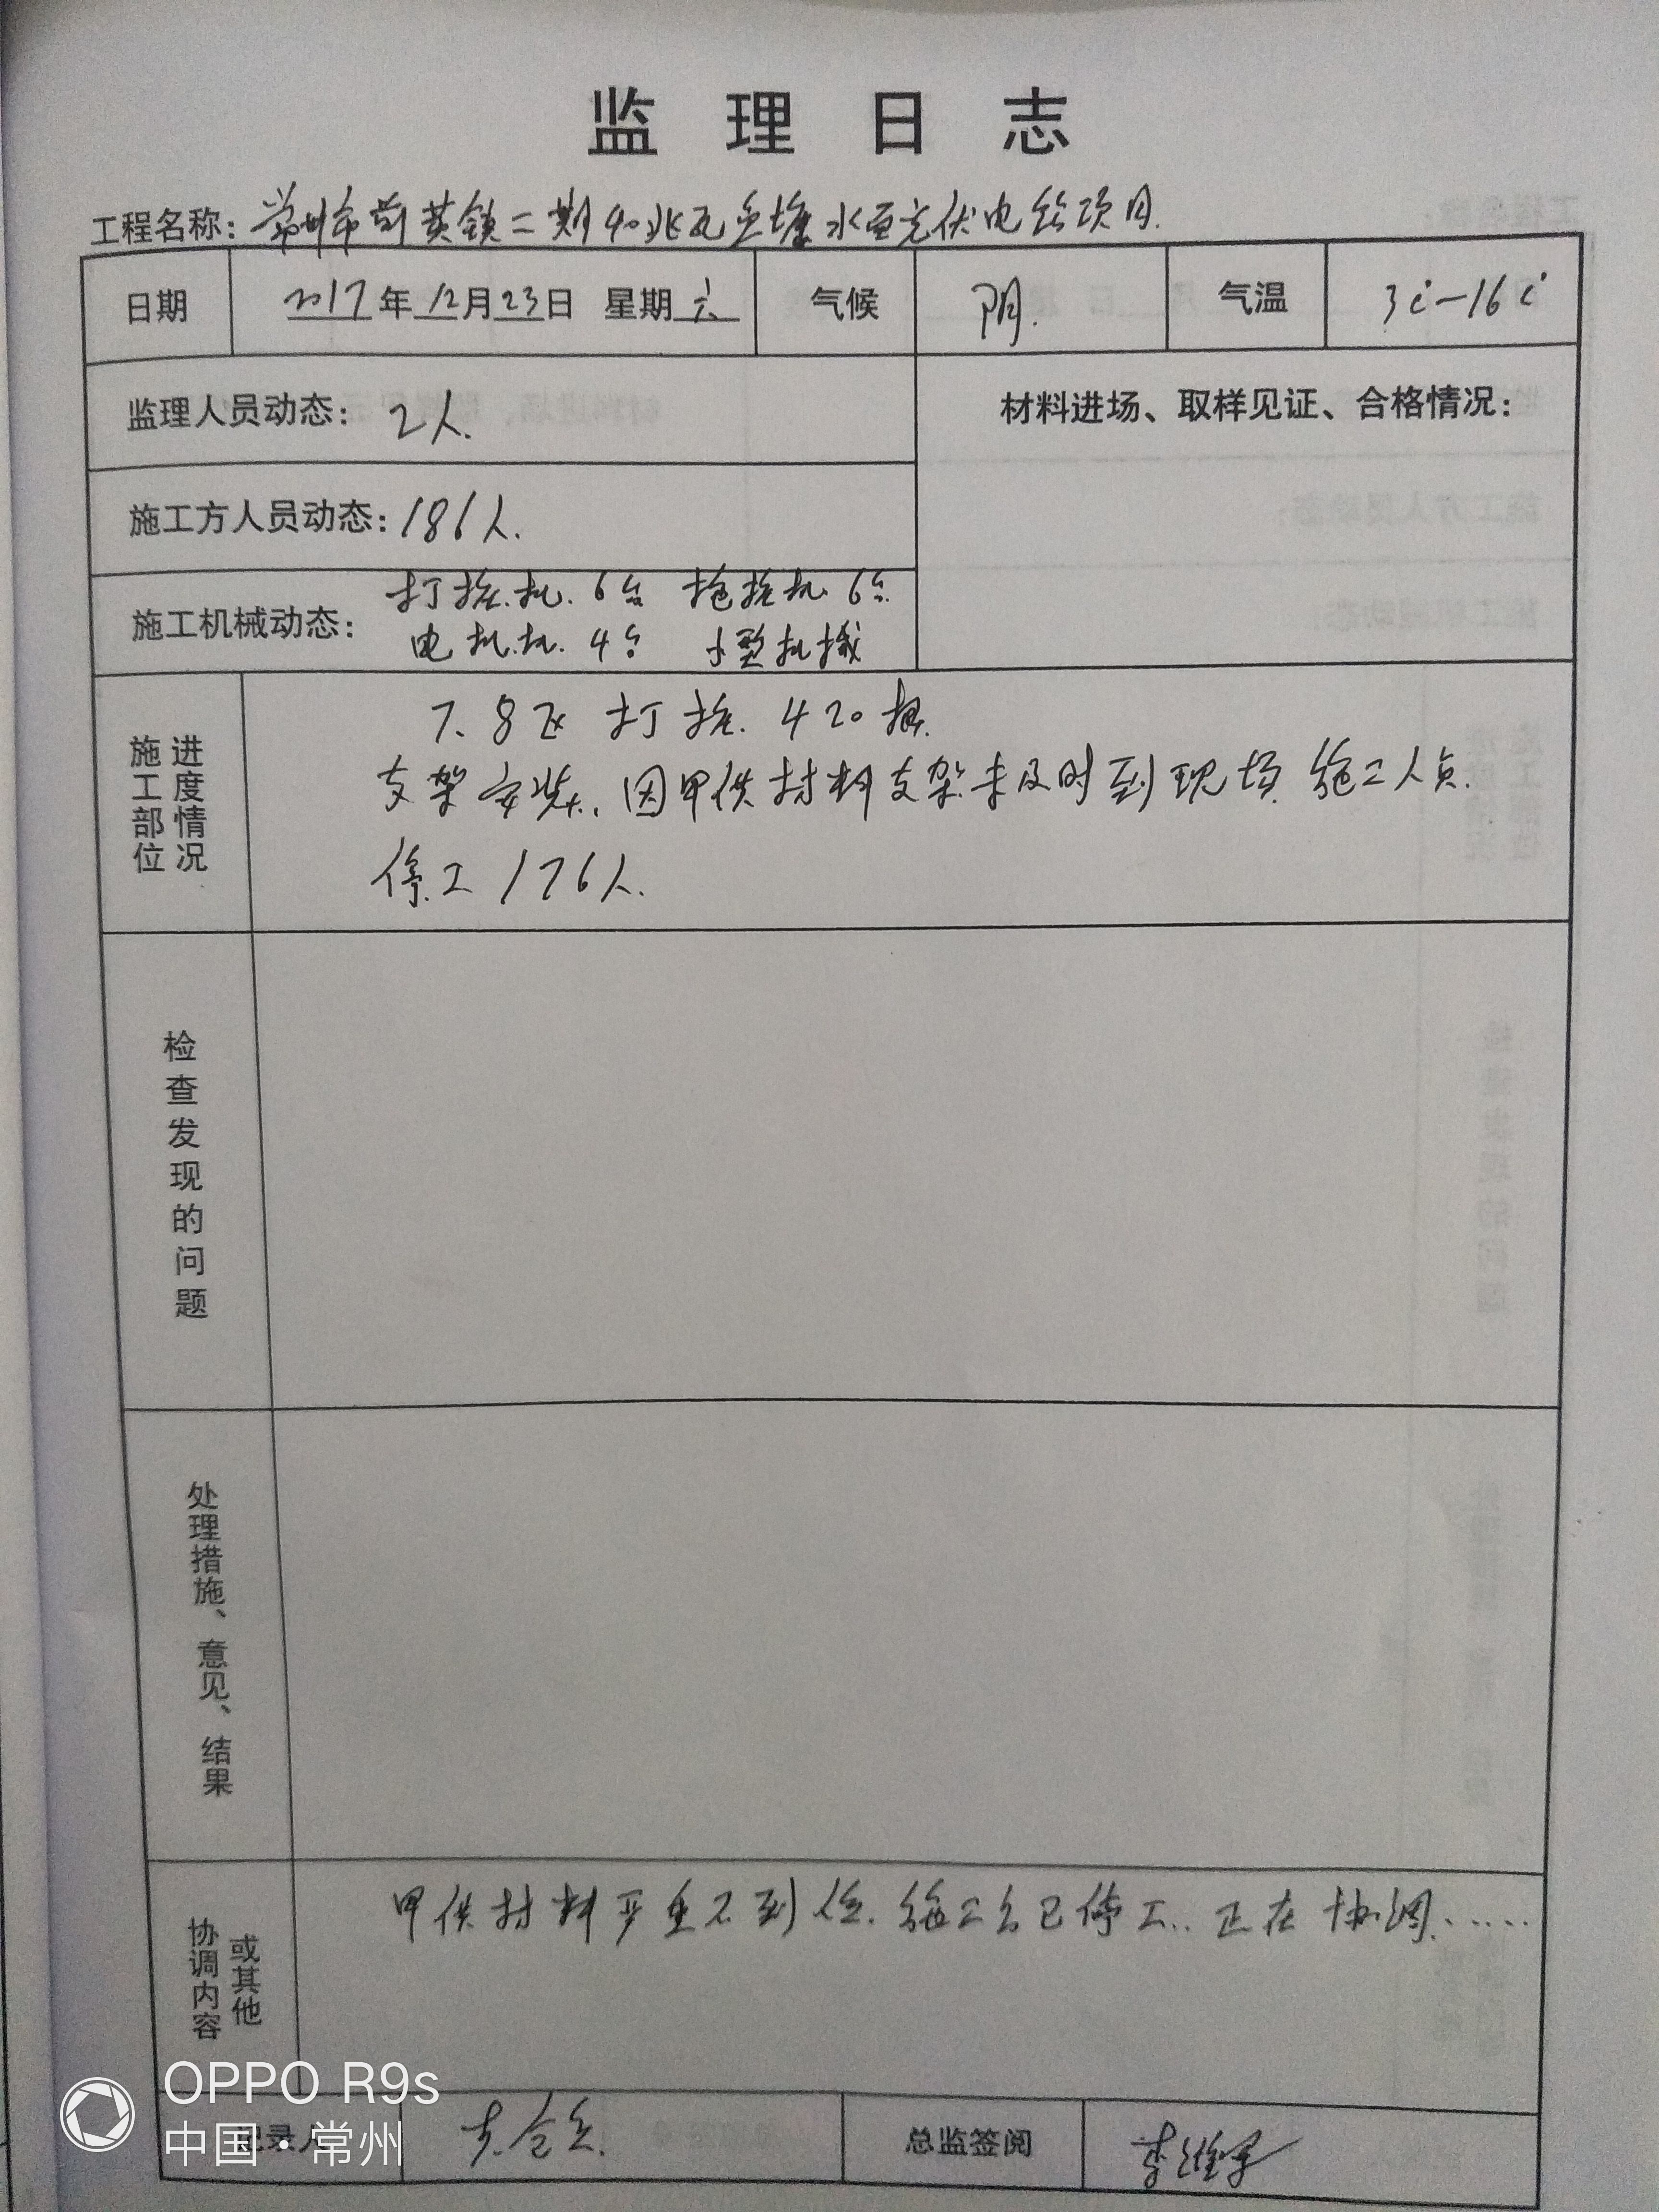 监理日志
工程名称：常州市前黄镇二期40兆瓦鱼塘水面光伏电站项目.
日期 2017年12月23日 星期六 气候 阴. 气温 3℃-16℃
监理人员动态：2人. 材料进场、取样见证、合格情况：
施工方人员动态：186人.
施工机械动态：打桩机.6台 拖桩机6台.
电机.4台 小型机械
施工部位
进度情况
7、8区 打桩. 420根.
支架安装. 因甲供材料支架未及时到现场 施工人员.
停工176人.
检查发现的问题
处理措施、意见、结果
协调内容
或其他
甲供材料严重不到位. 施工已停工.. 正在协调......
记录人 总监签阅
OPPO R9s
中国·常州